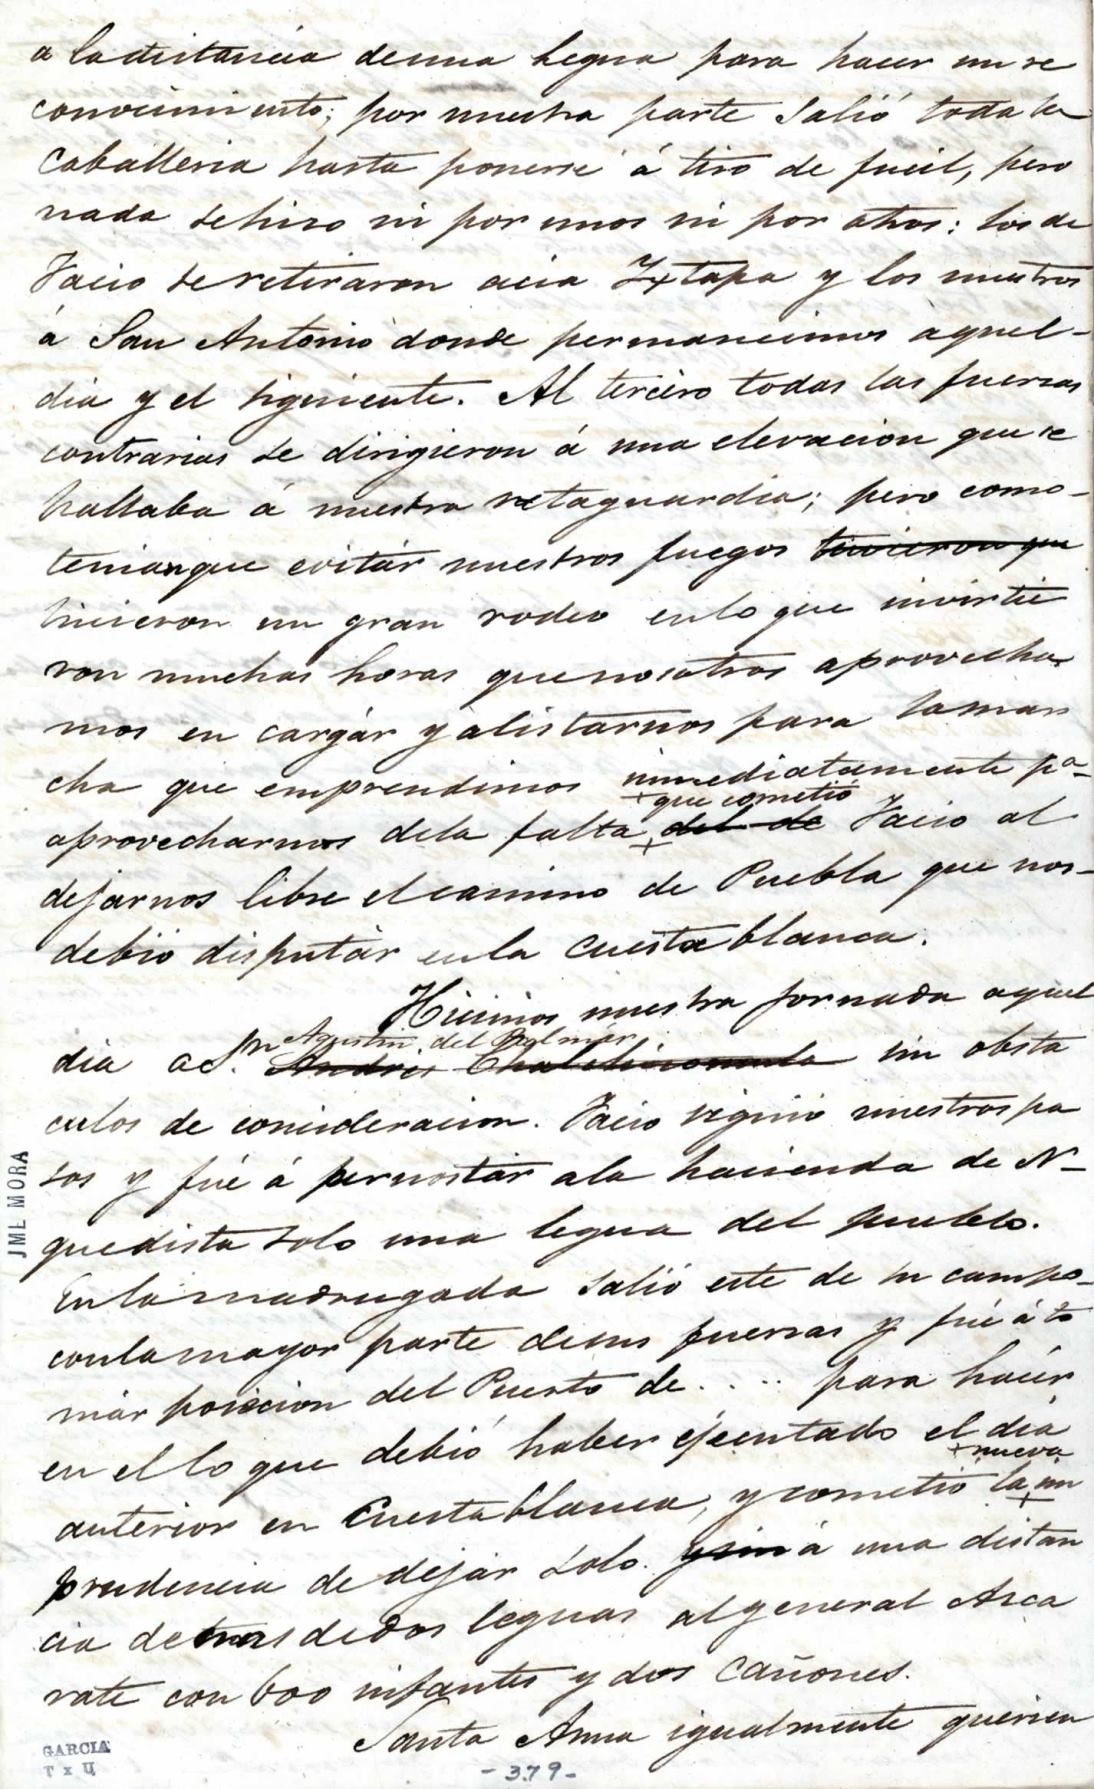 a la distancia de una legua para hacer un re
conocimiento; por nuestra parte salió toda la
Caballeria hasta ponerse á tiro de fucil, pero
nada se hizo ni por unos ni por otros: los de
Facio se retiraron acia Ixtapa y los nuestros
á San Antonio donde permanecimos aquel-
dia y el sigeniente. Al tercero todas las fuersas
contrarias se dirigieron á una elevacion que se
hallaba á nuestra retaguardia; pero como-
tenian que evitár nuestros fuegos tuvieron que
hicieron un gran rodeo en lo que invirtie
ron muchas horas que nosotros aprovecha
mos en cargár y alistarnos para la mar
cha que emprendimos inmediatamente pa-
+ que cometio
aprovecharnos dela falta del de Facio al
dejarnos libre el camino de Puebla que nos-
debió disputár en la cuesta blanca.
Hicimos nuestra jornada aquel
Agustin del Palmár
dia a Sn. Andrés Chalchicomula sin obsta
culos de concideracion. Facio siguió nuestros pa
sos y fué á pernoctár a la hacienda de N-
que dista solo una legua del pueblo.
En la madrugada salió este de su campo-
con la mayor parte de sus fuersas y fué á to
már posicion del Puerto de . . . . para hacér
en el lo que debió haber ejecutado el dia
+ nueva
anterior en Cuesta blanca, y cometió la im
prudencia de dejár solo. y sin á una distan
cia de tras de dos leguas al general Asca
rate con 600 infantes y dos cañones.
Santa Anna igualmente querien
JML MORA
GARCIA
- 379 -